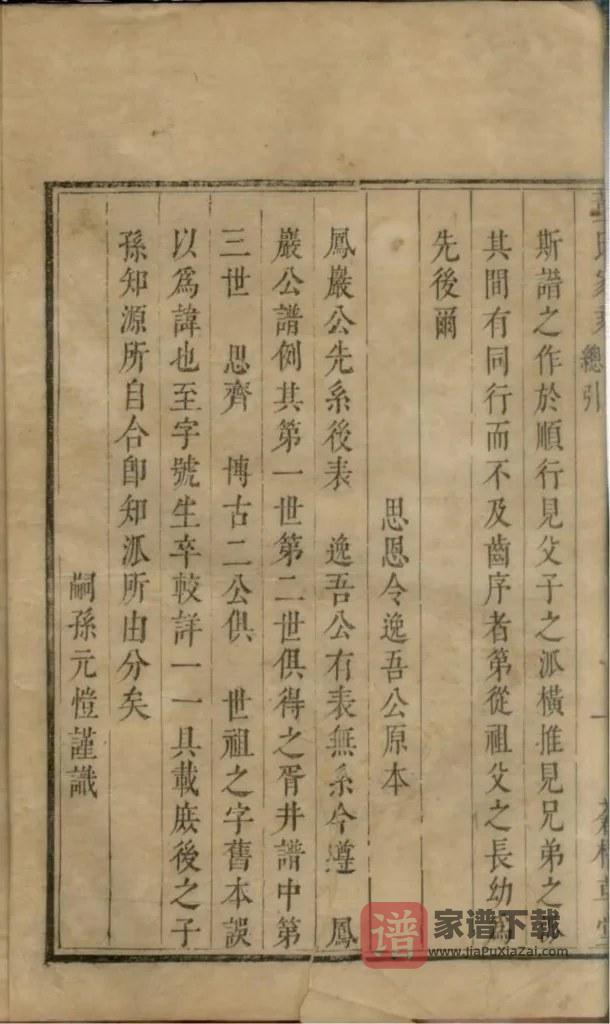 氏家乘 總引
斯譜之作於順行見父子之派橫推見兄弟之
其間有同行而不及齒序者第從祖父之長幼為
先後爾
思恩令逸吾公原本
鳳巖公先系後表 逸吾公有表無系今遵 鳳
巖公譜例其第一世第二世俱得之胥井譜中第
三世 思齊 博古二公俱 世祖之字舊本誤
以為諱也至字號生卒較詳一一具載庶後之子
孫知源所自合卽知派所由分矣
嗣孫元愷謹識
譜
家谱下载
www.jiaPuXiaZai.com